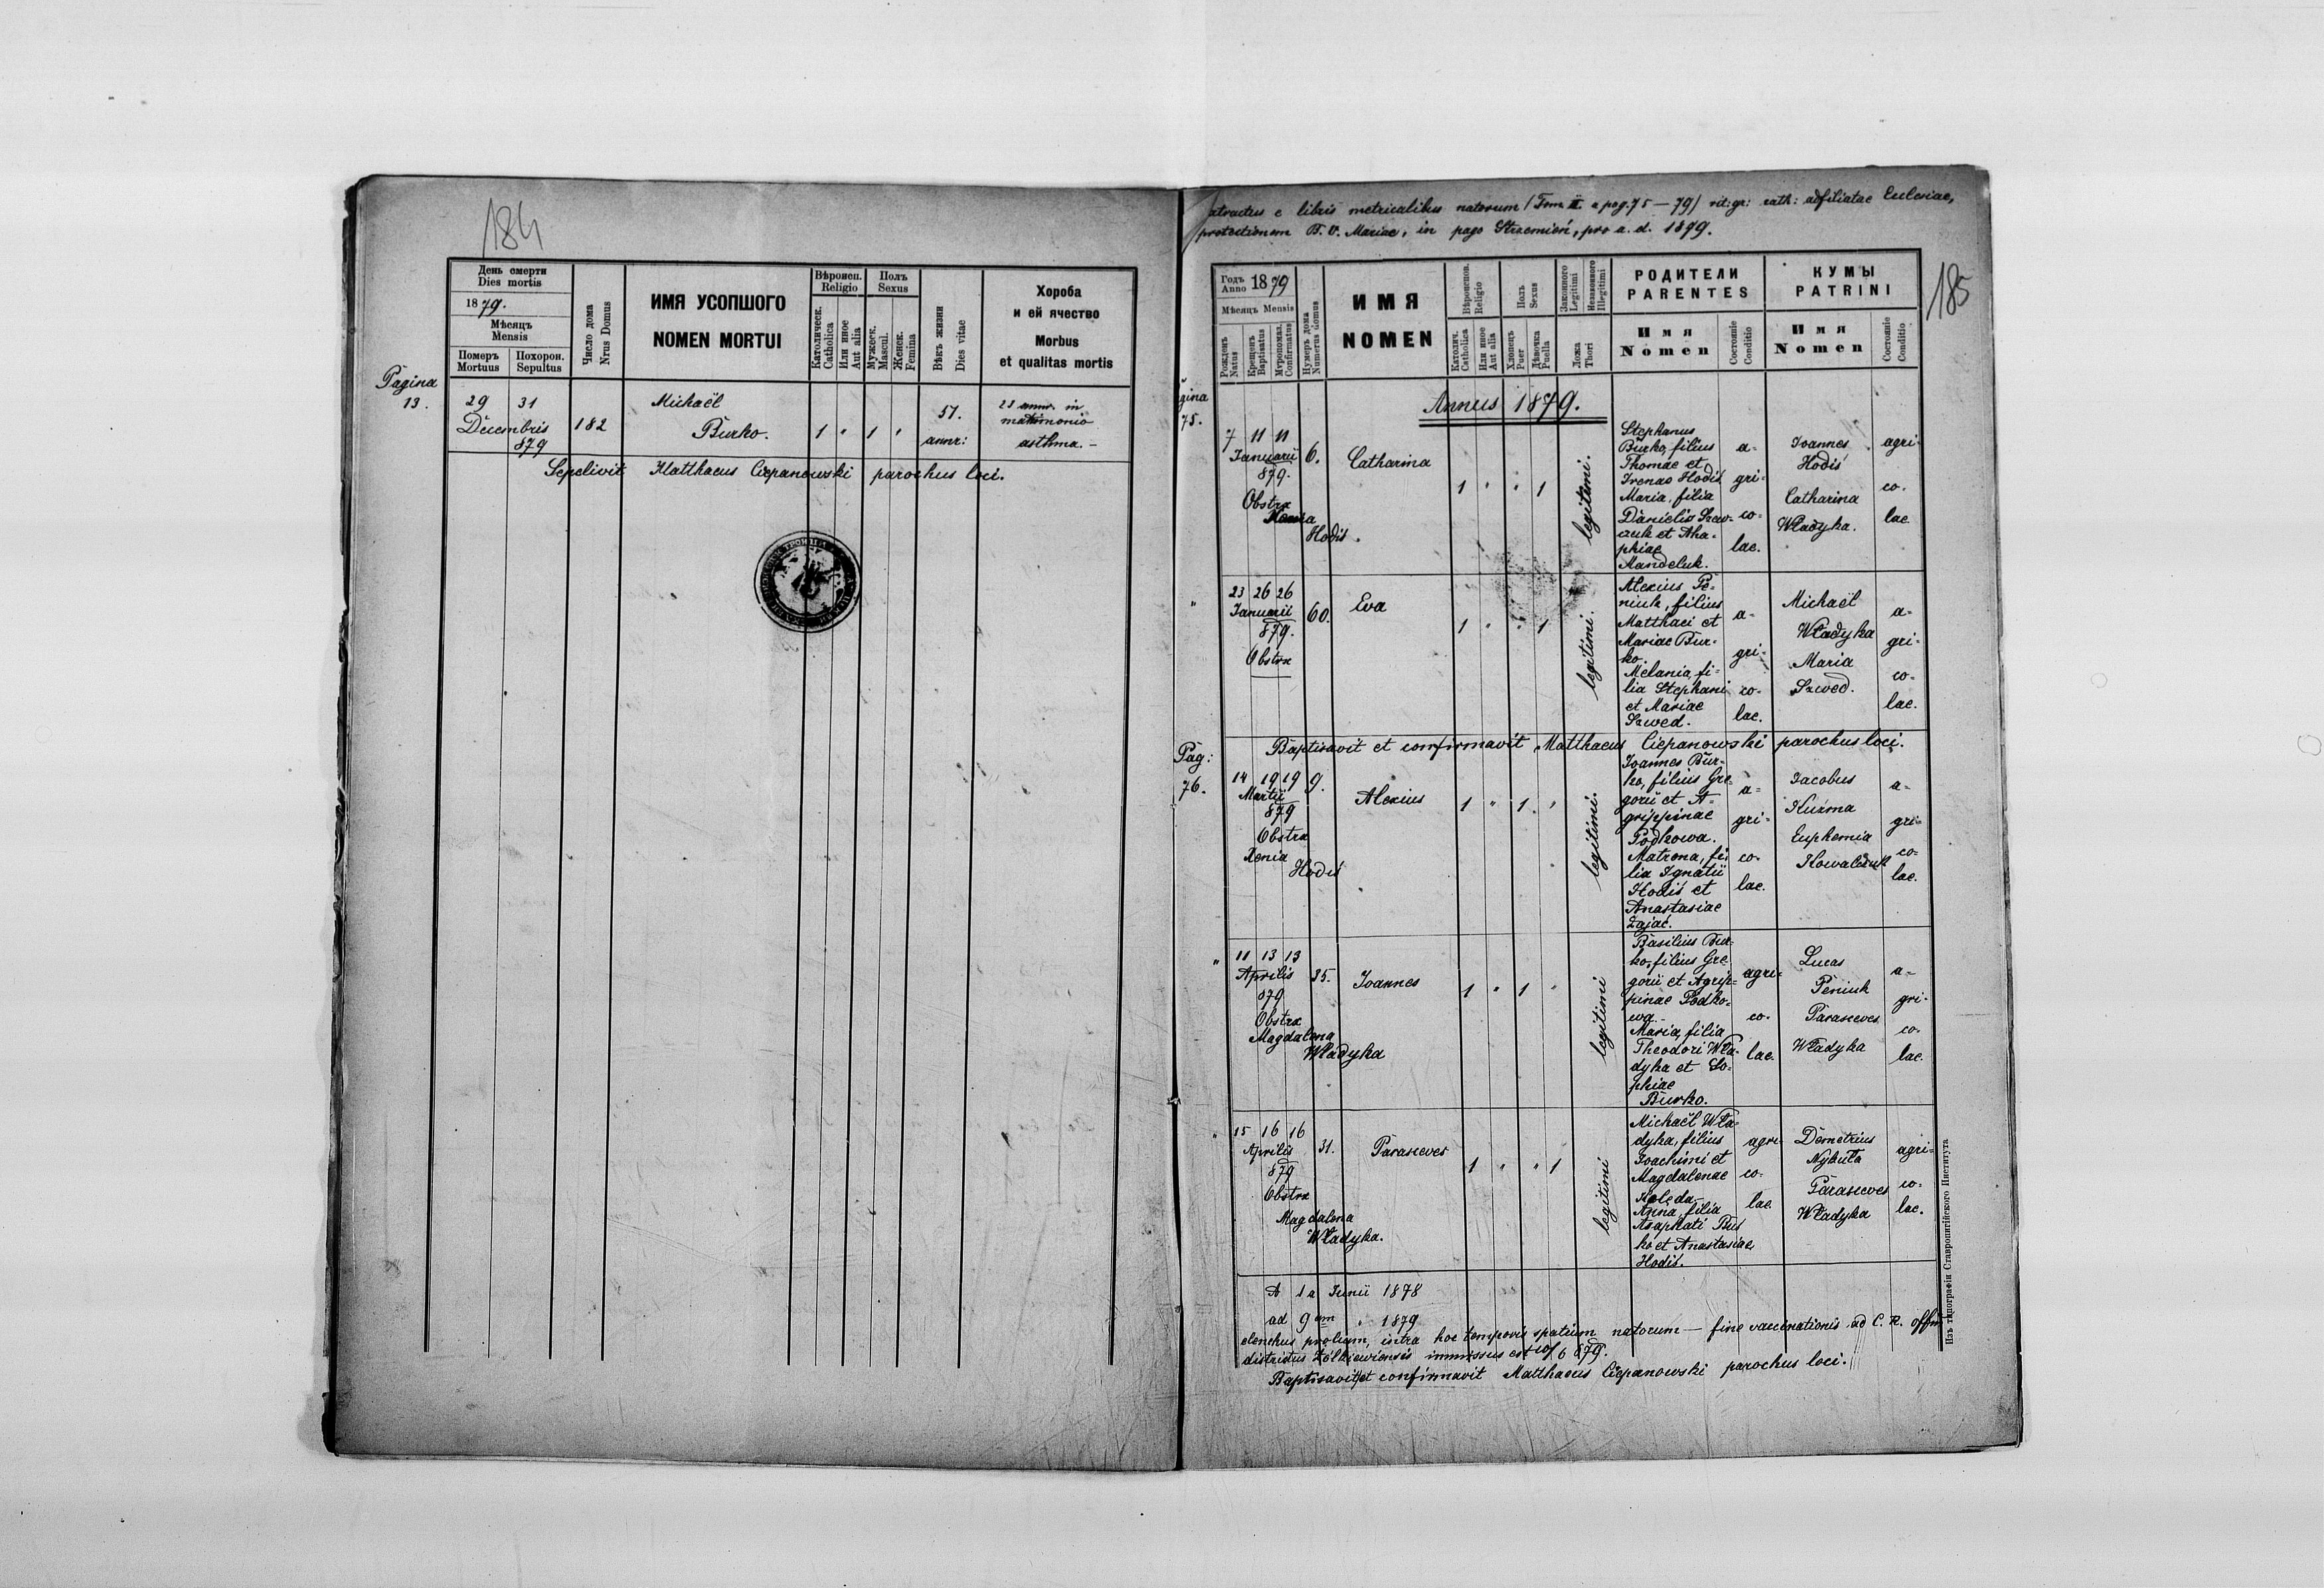 184
День смерти
Dies mortis
1879.
Мѣсяцъ
Mensis
Померъ
Mortuus
Похорон.
Sepultus
Число дома
Nrus Domus
ИМЯ УСОПШОГО
NOMEN MORTUI
Вѣроисп.
Religio
Католическ.
Catholica
Или иное
Aut alia
Полъ
Sexus
Мужеск.
Mascul.
Женск.
Femina
Вѣкъ жизни
Dies vitae
Хороба
и ей ячество
Morbus
et qualitas mortis
Pagina
13.
29 31
Decembris
879
182
Michaël
Burko.
1 " 1 "
51.
annr:
23 annr. in
matrimonio
asthma. –
Sepelivit Matthaeus Ciepanowski parochus loci.
185
xtractus e libris metricalibus natorum (Tom. II. a pag. 75 — 79) rit: gr: cath: adfiliatae Ecclesiae,
protectionem B. V. Mariae, in pago Strzemień, pro a. d. 1879.
Годъ
Anno 1879
Мѣсяцъ Mensis
Рожденъ
Natus
Крещенъ
Baptisatus
Муропомаз.
Confirmatus
Нумеръ дома
Numerus domus
ИМЯ
NOMEN
Вѣроиспов.
Religio
Католич.
Catholica
Или иное
Aut alia
Полъ
Sexus
Хлопецъ
Puer
Дѣвочка
Puella
Законного
Legitimi
Незаконного
Illegitimi
Ложа
Thori
РОДИТЕЛИ
PARENTES
Имя
Nomen
Состояніе
Conditio
КУМЫ
PATRINI
Имя
Nomen
Состояніе
Conditio
gina
75.
Annus 1879.
7 11 11
Januarii
879.
Obstrx
Maria
Hodiś.
6.
Catharina
1 " " 1
legitimi.
Stephanus
Burko, filius
Thomae et
Irenae Hodiś
Maria, filia
Danielis Szew-
czuk et Aha-
phiae
Mandeluk.
a-
gri-
co-
lae.
Joannes
Hodiś
Catharina
Władyka.
agri-
co-
lae
"
23 26 26
Januarii
879.
Obstrx
60.
Eva
1 " " 1
legitimi.
Alexius Pe-
niuk, filius
Matthaei et
Mariae Bur-
ko.
Melania, fi-
lia Stephani
et Mariae
Szwed.
a-
gri-
co-
lae.
Michaël
Władyka
Maria
Szwed.
a-
gri-
co-
lae.
Baptisavit et confirmavit Matthaeus Ciepanowski parochus loci.
Pag:
76.
14 19 19
Martii
879
Obstrx
Xenia
Hodiś
9.
Alexius
1 " 1. "
legitimi.
Joannes Bur-
ko, filius Gre-
gorii et A-
grippinae
Podkowa.
Matrona, fi-
lia Ignatii
Hodiś et
Anastasiae
Zajać.
a-
gri-
co-
lae.
Jacobus
Kuźma
Euphemia
Kowalczuk
a-
gri-
co-
lae.
"
11 13 13
Aprilis
879
Obstrx
Magdalena
Władyka
35.
Joannes
1 " 1 "
legitimi
Basilius Bur-
ko, filius Gre-
gorii et Agrip-
pinae Podko-
wa.-
Maria, filia
Theodori Wła-
dyka et So-
phiae
Burko.
agri-
co-
lae.
Lucas
Peniuk
Parasceves
Władyka
a-
gri-
co-
lae.
"
15 16 16
Aprilis
879
Obstrx
Magdalena
Władyka.
31.
Parasceves
1 " " 1
legitimi
Michaël Wła-
dyka, filius
Joachimi et
Magdalenae
Koleda.-
Anna, filia
Asaphati Bur
ko et Anastasiae
Hodiś.
agri-
co-
lae
Demetrius
Nykuła
Parasceves
Władyka
agri-
co-
lae.
A 1a Junii 1878
ad 9em " 1879
elenchus prolium, intra hoc temporis spatium natorum — fine vaccinationis ad C. R. offm
districtus Żółkiewiensis immissus est 10/6 879.
Baptisavit et confirmavit Matthaeus Ciepanowski parochus loci.
Изъ типографіи Ставропигійского Института